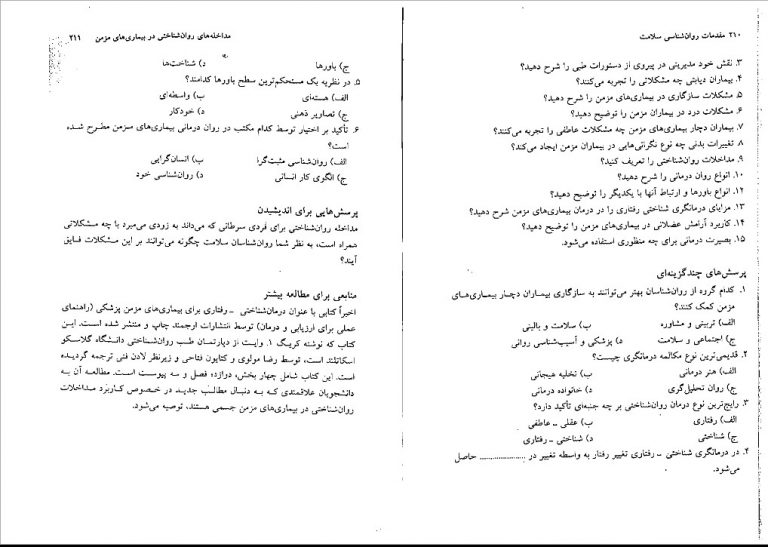 ۲۱۰ مقدمات روان‌شناسی سلامت
۳. نقش خود مدیریتی در پیروی از دستورات طبی را شرح دهید؟
۴. بیماران دیابتی چه مشکلاتی را تجربه می‌کنند؟
۵. مشکلات سازگاری در بیماری‌های مزمن را شرح دهید؟
۶. مشکلات درد در بیماران مزمن را توضیح دهید؟
۷. بیماران دچار بیماری‌های مزمن چه مشکلات عاطفی را تجربه می‌کنند؟
۸. تغییرات بدنی چه نوع نگرانی‌هایی در بیماران مزمن ایجاد می‌کند؟
۹. مداخلات روان‌شناختی را تعریف کنید؟
۱۰. انواع روان درمانی را شرح دهید؟
۱۲. انواع باورها و ارتباط آنها با یکدیگر را توضیح دهید؟
۱۳. مزایای درمانگری شناختی رفتاری را در درمان بیماری‌های مزمن شرح دهید؟
۱۴. کاربرد آرامش عضلانی در بیماری‌های مزمن را توضیح دهید؟
۱۵. بصیرت درمانی برای چه منظوری استفاده می‌شود.
پرسش‌های چندگزینه‌ای
۱. کدام گروه از روان‌شناسان بهتر می‌توانند به سازگاری بیماران دچار بیماری‌های
مزمن کمک کنند؟
الف) تربیتی و مشاوره ب) سلامت و بالینی
ج) اجتماعی و سلامت د) پزشکی و آسیب‌شناسی روانی
۲. قدیمی‌ترین نوع مکالمه درمانگری چیست؟
الف) هنر درمانی ب) تخلیه هیجانی
ج) روان تحلیل‌گری د) خانواده درمانی
۳. رایج‌ترین نوع درمان روان‌شناختی بر چه جنبه‌ای تأکید دارد؟
الف) رفتاری ب) عقلی ـ عاطفی
ج) شناختی د) شناختی ـ رفتاری
۴. در درمانگری شناختی ـ رفتاری تغییر رفتار به واسطه تغییر در .................... حاصل
می‌شود.
مداخله‌های روان‌شناختی در بیماری‌های مزمن ۲۱۱
ج) باورها د) شناخت‌ها
۵. در نظریه بک مستحکم‌ترین سطح باورها کدامند؟
الف) هسته‌ای ب) واسطه‌ای
ج) تصاویر ذهنی د) خودکار
۶. تأکید بر اختیار توسط کدام مکتب در روان درمانی بیماری‌های مزمن مطرح شده
است؟
الف) روان‌شناسی مثبت‌گرا ب) انسان‌گرایی
ج) الگوی کار انسانی د) روان‌شناسی خود
پرسش‌هایی برای اندیشیدن
مداخله روان‌شناختی برای فردی سرطانی که می‌داند به زودی می‌میرد با چه مشکلاتی
همراه است، به نظر شما روان‌شناسان سلامت چگونه می‌توانند بر این مشکلات فایق
آیند؟
منابعی برای مطالعه بیشتر
اخیراً کتابی با عنوان درمان‌شناختی ـ رفتاری برای بیماری‌های مزمن پزشکی (راهنمای
عملی برای ارزیابی و درمان) توسط انتشارات ارجمند چاپ و منتشر شده است. این
کتاب که نوشته کریگ ۱. وایت از دپارتمان طب روان‌شناختی دانشگاه گلاسکو
اسکاتلند است، توسط رضا مولوی و کتایون فتاحی و زیرنظر لادن فتی ترجمه گردیده
است. این کتاب شامل چهار بخش، دوازده فصل و سه پیوست است. مطالعه آن به
دانشجویان علاقمندی که به دنبال مطالب جدید در خصوص کاربرد مداخلات
روان‌شناختی در بیماری‌های مزمن جسمی هستند، توصیه می‌شود.